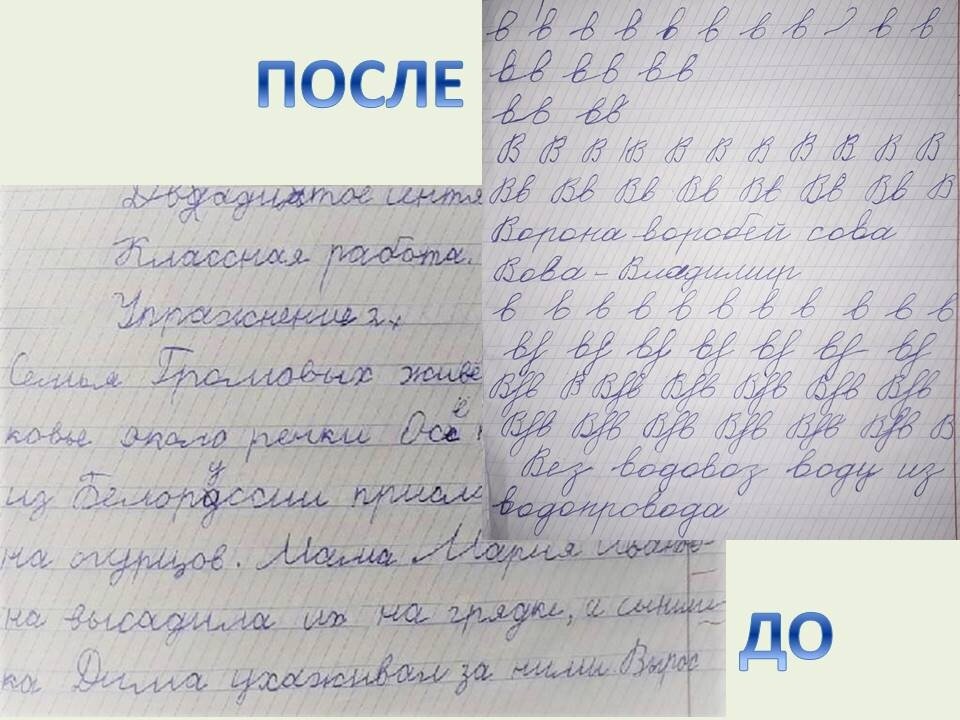 ПОСЛЕ
в в в в в в в в в в в
вв вв вв
вв вв
В В В В В В В В В В В
Вв Вв Вв Вв Вв Вв Вв В
Ворона воробей сова
Вова - Владимир
в в в в в в в в в в в в
Вез водовоз воду из
водопровода
Двадцатое
Классная работа.
Упражнение 2.
Семья Громовых живё
ковье около речки Осё
из Белоруссии присла
на огурцов. Мама Мария Иванов-
на высадила их на грядке, а сыниш-
ка Дима ухаживал за ними Вырос
ДО